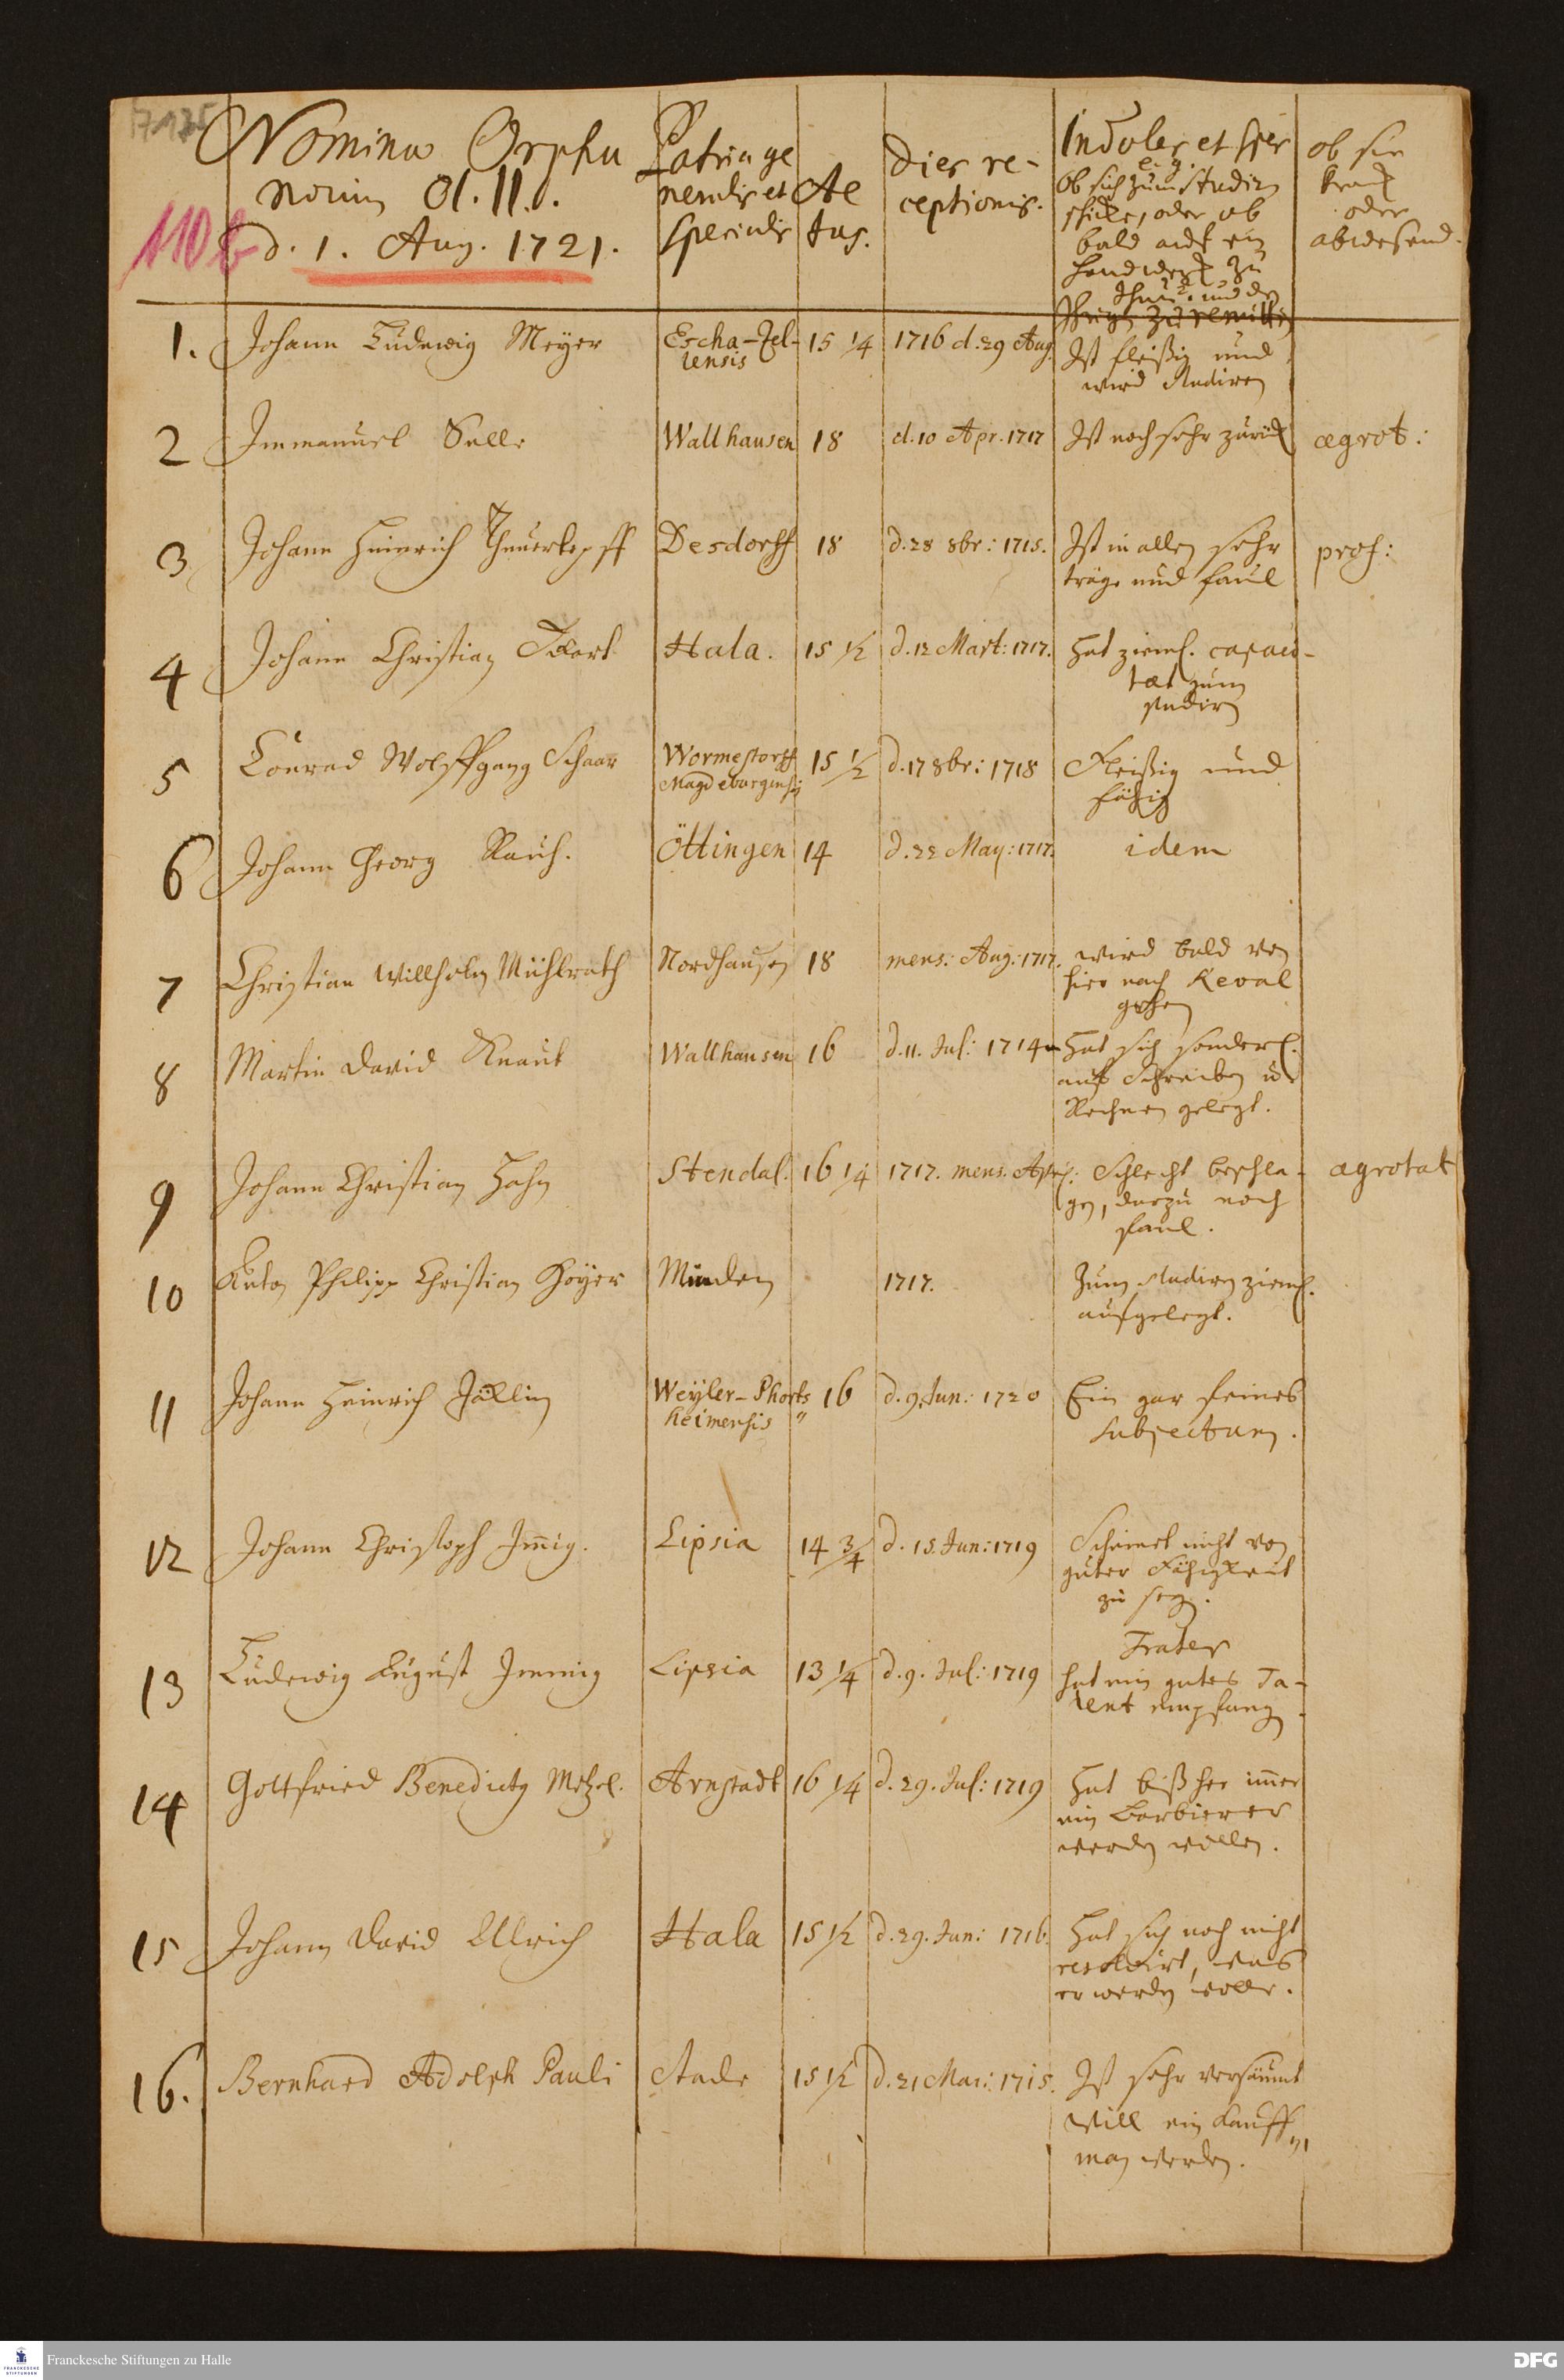 Nomina Orpha
norum Cl. II.
d. 1. Aug. 1721.
110b
Patria ge
neralis et
specialis
Ae
tas.
Dies re-
ceptionis.
Indoles et spes
e. g.
ob sich zum studiren
schicke, oder ob
bald auf ein
Handwerk zu
thun. und der
ob sie
krank
oder
abwesend.
1. Johann Ludewig Meyer Escha-Zel- 15 1/4 1716 d. 29 Aug. Ist fleißig und
lensis
wird studiren
2 Immanuel Selle Wallhausen 18 d. 10 Apr. 1717 Ist noch sehr zurück ægrot:
3 Johann Heinrich Theuerkopff Desdorff 18 d. 28 8br: 1715. Ist in allen sehr prof:
träge und faul
4 Johann Christian Hala. 15 1/2 d. 12 Mart: 1717. Hat zieml. capaci-
tæt zum
studiren
5 Conrad Wolffgang Schaar Wormestorff 15 1/2 d. 17 8br: 1718 Fleißig und
Magdeburgensis
fähig
6 Johann Georg Rauch. Öttingen 14 d. 22 May: 1717. idem
7 Christian Willhelm Mühlrath Nordhausen 18 mens: Aug: 1717. wird bald von
hier nach Reval
gehen
8 Martin David Knaut Wallhausen 16 d. 11. Jul: 1714 Hat sich sonderl.
aufs Schreiben u.
Rechnen gelegt.
9 Johann Christian Hahn Stendal. 16 1/4 1717. mens. Apr: Schlecht beschla- ægrotat
gen, darzu noch
faul.
10 Anton Philipp Christian Hoÿer Minden 1717. Zum studiren zieml.
aufgelegt.
11 Johann Heinrich Jäcklin Weÿler-Phorts 16 d. 9. Jun: 1720 Ein gar feines
heimensis "
subjectum.
12 Johann Christoph Im̃ig. Lipsia 14 3/4 d. 15. Jun: 1719 Scheinet nicht von
guter Fähigkeit
zu seyn.
13 Ludewig August Immig Lipsia 13 1/4 d. 9. Jul: 1719 Frater
hat ein gutes Ta-
lent empfangen.
14 Gottfried Benedictus Metzel. Arnstadt 16 1/4 d. 29. Jul: 1719 Hat bißher im̃er
ein Barbierer
werden wollen.
15 Johann David Ullrich Hala 15 1/2 d. 29. Jun: 1716. Hat sich noch nicht
resolvirt, was
er werden wolle.
16. Bernhard Adolph Pauli Stade 15 1/2 d. 21 Mai: 1715. Ist sehr versäumt
will ein Kauff-
man werden.
FRANCKESCHE
STIFTUNGEN
Franckesche Stiftungen zu Halle
DFG